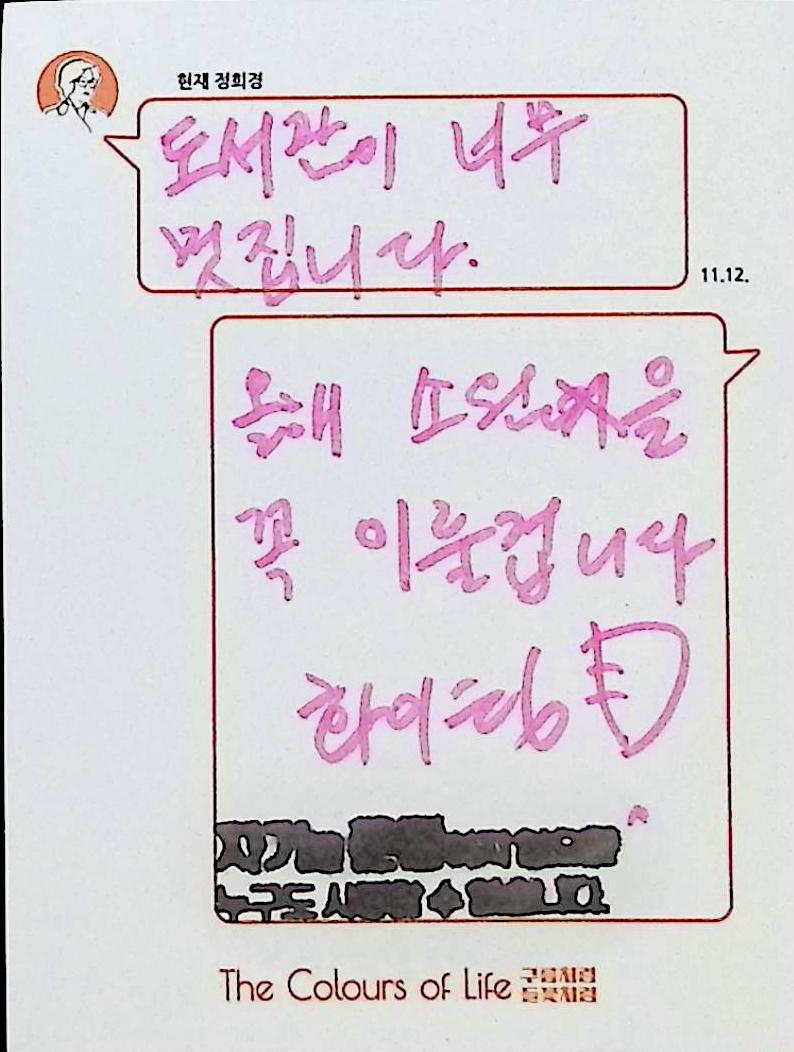 현재 정희경
도서관이 너무
멋집니다.
11.12.
올해 소원
꼭 이룰겁니다
화이팅
누구도
The Colours of Life 구름처럼
들꽃처럼